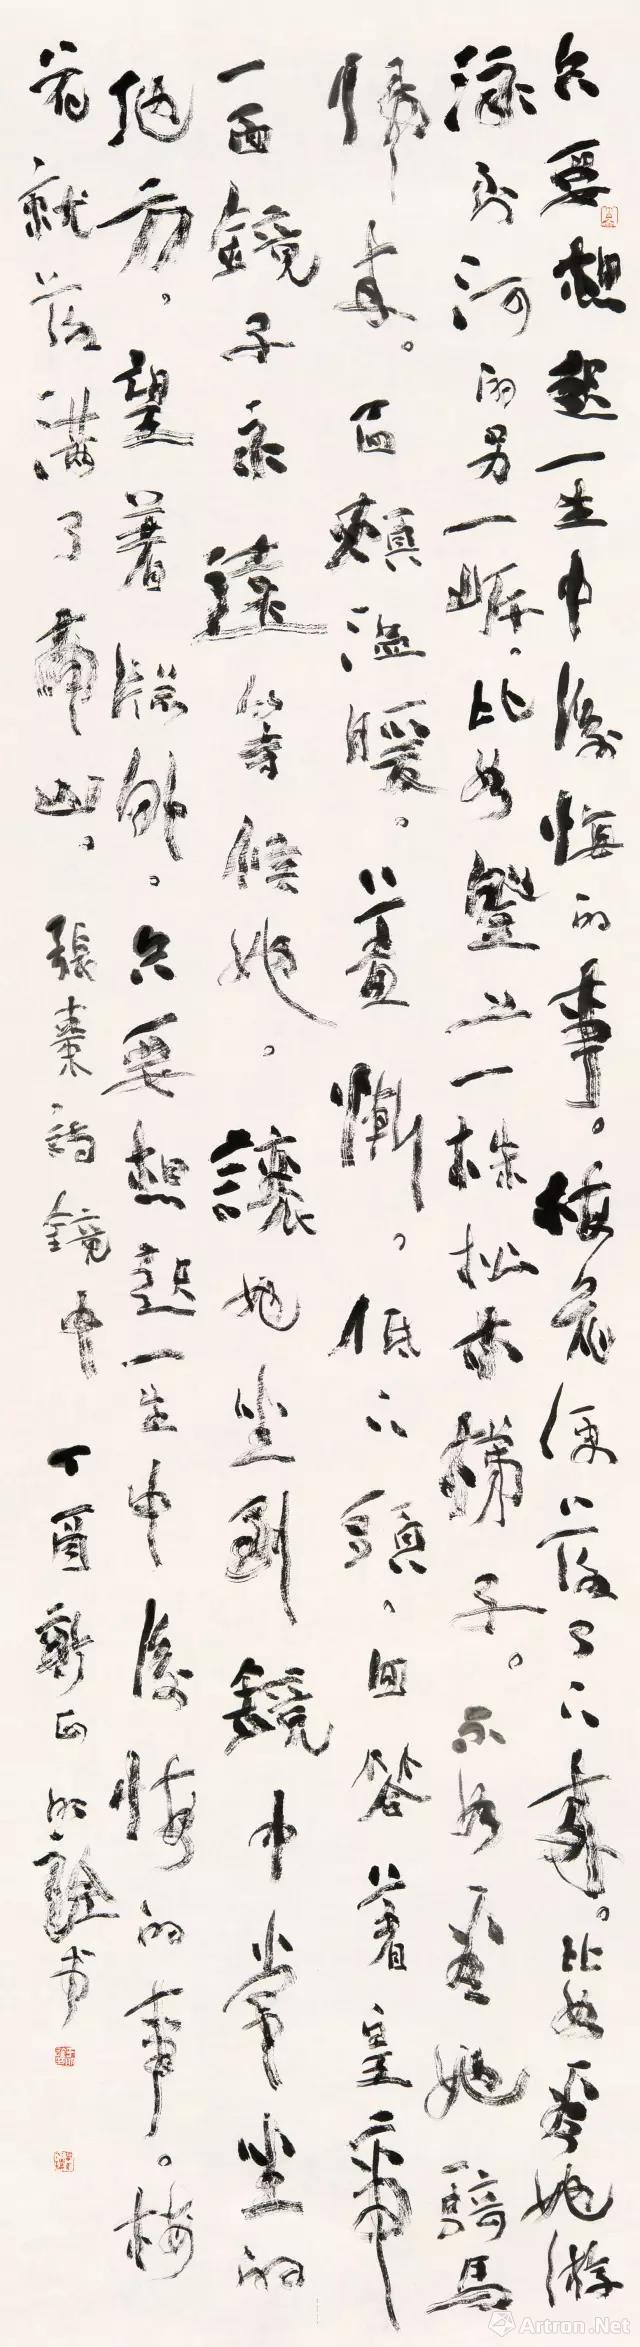 只要想起一生中後悔的事。梅花便落了下來。比如看她游
泳到河的另一岸。比如登上一株松木梯子。不如看她騎馬
歸来。面頰溫暖。羞慚。低下頭，回答着皇帝
一面鏡子永遠等候她。讓她坐到鏡中常坐的
地方。望着牕外。只要想起一生中後悔的事。梅
花就落满了南山。張棗詩鏡中 丁酉新正 書
Artron.Net